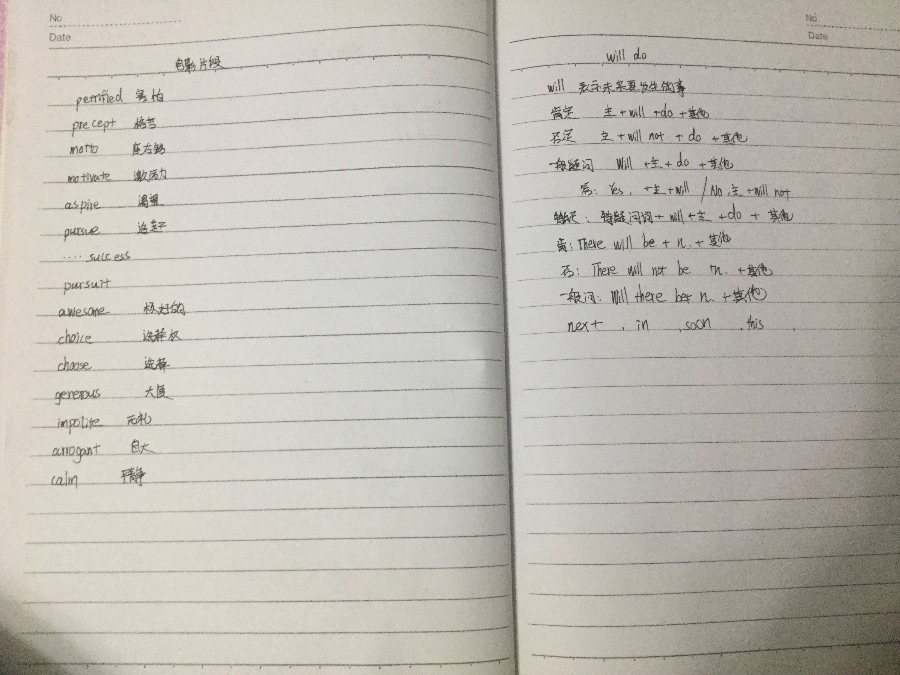 No
Date
电影片段
perrified 害怕
precept 格言
motto 座右铭
motivate 激励
aspire 渴望
pursue 追求
..... success
pursuit
awesome 极好的
choice 选择权
choose 选择
generous 大度
impolite 无礼
arrogant 自大
calm 平静
No
Date
will do
will 表示未来要发生的事
肯定 主+will+do+其他
否定 主+will not+do+其他
一般疑问 Will+主+do+其他
答: Yes, +主+will / No,主+will not
特疑: 特疑问词+will+主+do+其他
肯: There will be + n. +其他
否: There will not be n. +其他
一般问: Will there be+ n. +其他
next , in , soon , this ,